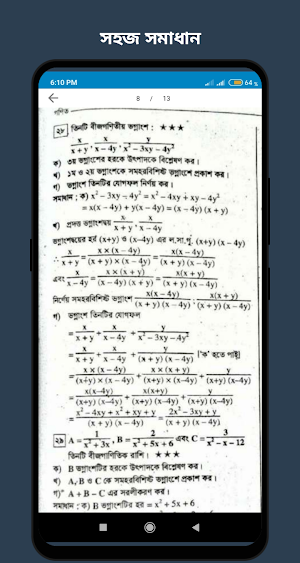 সহজ সমাধান
6:10 PM 64 %
8 / 13
গণিত
২৮ তিনটি বীজগণিতীয় ভগ্নাংশ : ★★★
x/(x + y), x/(x – 4y), y/(x² – 3xy – 4y²)
ক) ৩য় ভগ্নাংশের হরকে উৎপাদকে বিশ্লেষণ কর।
খ) ১ম ও ২য় ভগ্নাংশকে সমহরবিশিষ্ট ভগ্নাংশে প্রকাশ কর।
গ) ভগ্নাংশ তিনটির যোগফল নির্ণয় কর।
সমাধান : ক) x² – 3xy – 4y² = x² – 4xy + xy – 4y²
= x(x – 4y) + y(x – 4y) = (x – 4y) (x + y)
খ) প্রদত্ত ভগ্নাংশদ্বয় x/(x + y), x/(x – 4y)
ভগ্নাংশদ্বয়ের হর (x+y) ও (x–4y) এর ল.সা.গু. (x+y) (x – 4y)
∴ x/(x + y) = x × (x – 4y)/((x + y) × (x – 4y)) = x(x – 4y)/((x + y) (x – 4y))
এবং x/(x – 4y) = x × (x + y)/((x – 4y) × (x + y)) = x(x + y)/((x + y) (x – 4y))
নির্ণেয় সমহরবিশিষ্ট ভগ্নাংশ x(x – 4y)/((x + y) (x – 4y)), x(x + y)/((x + y) (x – 4y))
গ) ভগ্নাংশ তিনটির যোগফল
= x/(x + y) + x/(x – 4y) + y/(x² – 3xy – 4y²)
= x/(x + y) + x/(x – 4y) + y/((x + y) (x – 4y)) ['ক' হতে পাই]
= x × (x – 4y)/((x+y) × (x – 4y)) + x × (x + y)/((x+y) × (x–4y)) + y/((x+y) (x–4y))
= x(x–4y)/((x+y) (x–4y)) + x(x+y)/((x+y) (x–4y)) + y/((x+y) (x–4y))
= (x² – 4xy + x² + xy + y)/((x + y) (x – 4y)) = (2x² – 3xy + y)/((x + y) (x – 4y))
২৯ A = 1/(x² + 3x), B = 2/(x² + 5x + 6) এবং C = 3/(x² – x – 12)
তিনটি বীজগাণিতিক রাশি। ★★★
ক) B ভগ্নাংশটির হরকে উৎপাদকে বিশ্লেষণ কর।
খ) A, B ও C কে সমহরবিশিষ্ট ভগ্নাংশে প্রকাশ কর।
গ) A + B – C এর সরলীকরণ কর।
সমাধান : ক) B ভগ্নাংশটির হর = x² + 5x + 6